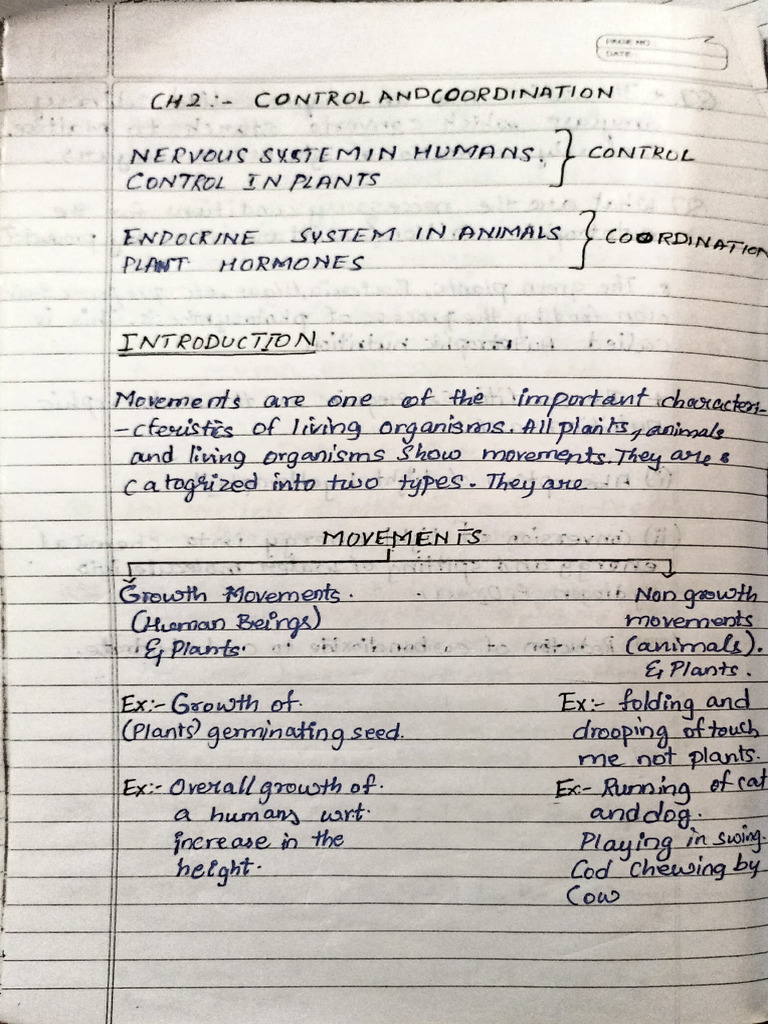 PAGE NO
DATE
CH2:- CONTROL AND COORDINATION
NERVOUS SYSTEM IN HUMANS. } CONTROL
CONTROL IN PLANTS
ENDOCRINE SYSTEM IN ANIMALS } COORDINATION
PLANT HORMONES
INTRODUCTION
Movements are one of the important characteri-
-cteristics of living organisms. All plants, animals
and living organisms show movements. They are
catogrized into two types. They are
MOVEMENTS
Growth Movements.
(Human Beings)
& Plants.
Ex:- Growth of
(Plants) germinating seed.
Ex:- Overall growth of
a humans wrt.
increase in the
height.
Non growth
movements
(animals).
& Plants.
Ex:- folding and
drooping of touch
me not plants.
Ex- Running of cat
and dog.
Playing in swing.
Cod chewing by
Cow